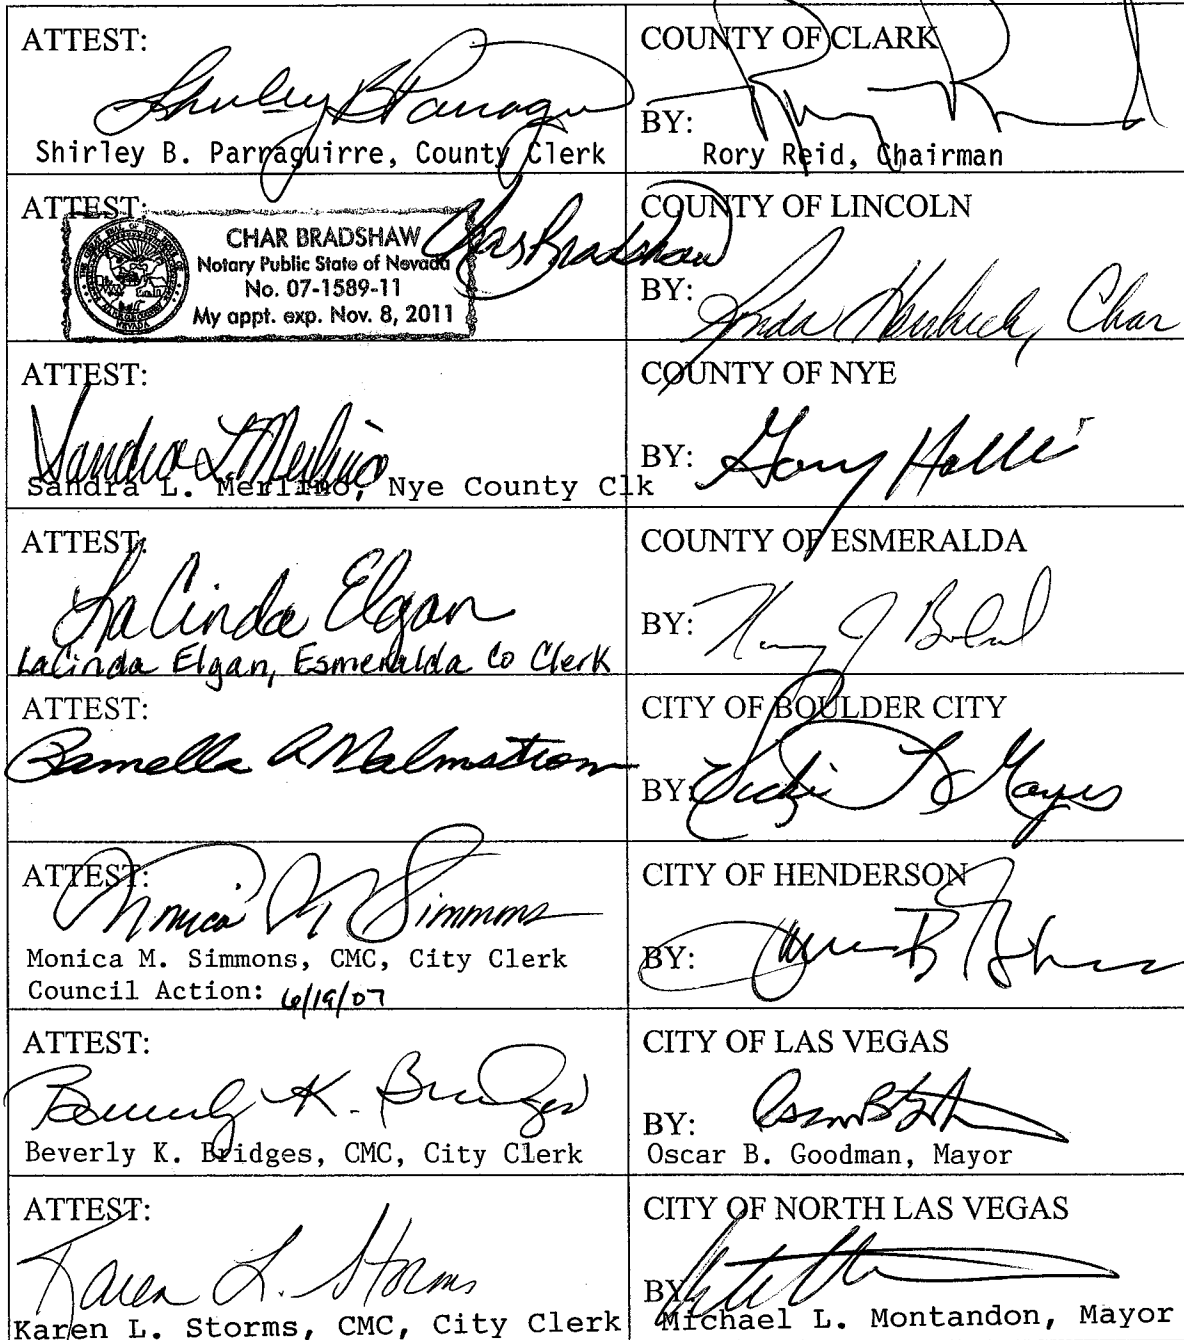 ATTEST:
Shirley B Parragu
Shirley B. Parraguirre, County Clerk
COUNTY OF CLARK
BY:
Rory Reid, Chairman
ATTEST:
CHAR BRADSHAW
Notary Public State of Nevada
No. 07-1589-11
My appt. exp. Nov. 8, 2011
Char Bradshaw
COUNTY OF LINCOLN
BY:
ATTEST:
Sandra L. Merlino
Sandra L. Merlino, Nye County Clk
COUNTY OF NYE
BY: Gary Hollis
ATTEST:
LaCinda Elgan
LaCinda Elgan, Esmeralda Co Clerk
COUNTY OF ESMERALDA
BY:
ATTEST:
Pamella A Malmstrom
CITY OF BOULDER CITY
BY:
ATTEST:
Monica M Simmons
Monica M. Simmons, CMC, City Clerk
Council Action: 6/19/07
CITY OF HENDERSON
BY:
ATTEST:
Beverly K. Bridges
Beverly K. Bridges, CMC, City Clerk
CITY OF LAS VEGAS
BY:
Oscar B. Goodman, Mayor
ATTEST:
Karen L. Storms
Karen L. Storms, CMC, City Clerk
CITY OF NORTH LAS VEGAS
BY:
Michael L. Montandon, Mayor